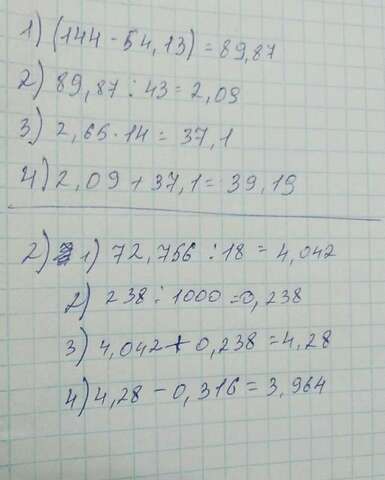 1) (144 - 54,13) = 89,87
2) 89,87 : 43 = 2,09
3) 2,65 · 14 = 37,1
4) 2,09 + 37,1 = 39,19
2) 1) 72,756 : 18 = 4,042
2) 238 : 1000 = 0,238
3) 4,042 + 0,238 = 4,28
4) 4,28 - 0,316 = 3,964